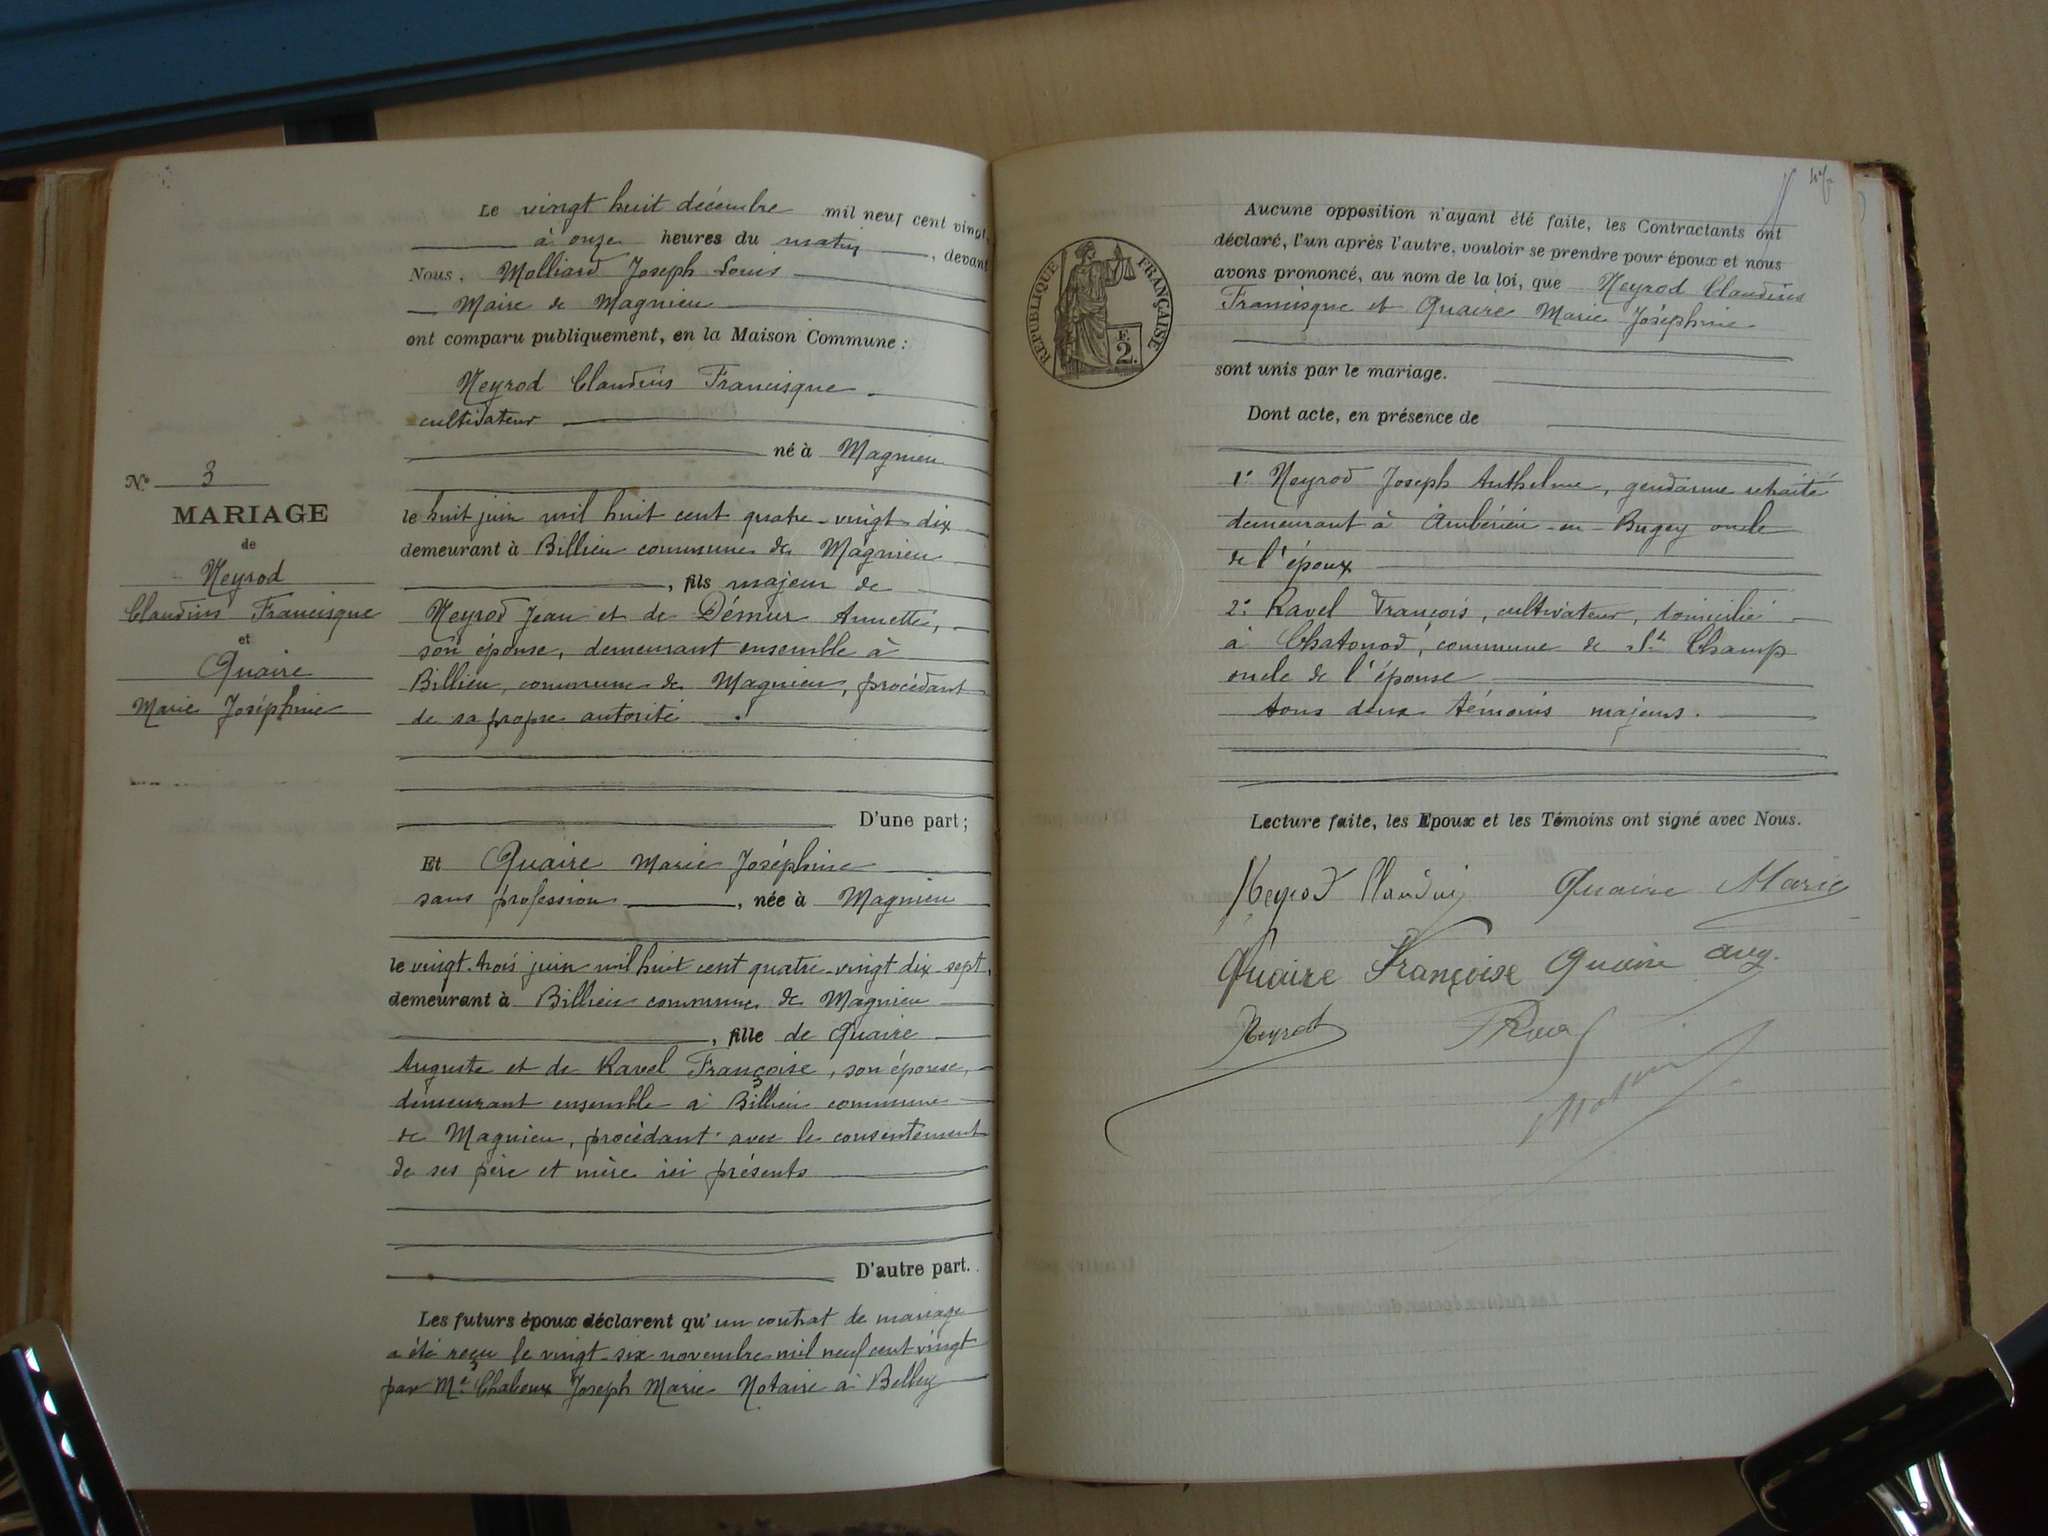 N° 3
MARIAGE
de
Neyrod
Claudius Francisque
et
Quaire
Marie Joséphine
Le vingt huit décembre mil neuf cent vingt,
à onze heures du matin, devant
Nous, Molliard Joseph Louis
Maire de Magnieu
ont comparu publiquement, en la Maison Commune :
Neyrod Claudius Francisque
cultivateur
né à Magnieu
le huit juin mil huit cent quatre-vingt dix
demeurant à Billieu commune de Magnieu
, fils majeur de
Neyrod Jean et de Démur Annette,
son épouse, demeurant ensemble à
Billieu, commune de Magnieu, procédant
de sa propre autorité.
D'une part;
Et Quaire Marie Joséphine
sans profession, née à Magnieu
le vingt-trois juin mil huit cent quatre-vingt dix-sept,
demeurant à Billieu commune de Magnieu
, fille de Quaire
Auguste et de Ravel Françoise, son épouse,
demeurant ensemble à Billieu commune
de Magnieu, procédant avec le consentement
de ses père et mère ici présents
D'autre part.
Les futurs époux déclarent qu'un contrat de mariage
a été reçu le vingt-six novembre mil neuf cent vingt
par Me Joseph Marie Notaire à Belley
Aucune opposition n'ayant été faite, les Contractants ont
déclaré, l'un après l'autre, vouloir se prendre pour époux et nous
avons prononcé, au nom de la loi, que Neyrod Claudius
Francisque et Quaire Marie Joséphine
sont unis par le mariage.
Dont acte, en présence de
1° Neyrod Joseph Anthelme, gendarme retraité
demeurant à Ambérieu-en-Bugey oncle
de l'époux
2° Ravel François, cultivateur, domicilié
à Chatonod, commune de St Champ
oncle de l'épouse
tous deux témoins majeurs.
Lecture faite, les Epoux et les Témoins ont signé avec Nous.
Neyrod Claudius Quaire Marie
Quaire Françoise Quaire Aug.
Neyrod
RÉPUBLIQUE FRANÇAISE
F.
2.